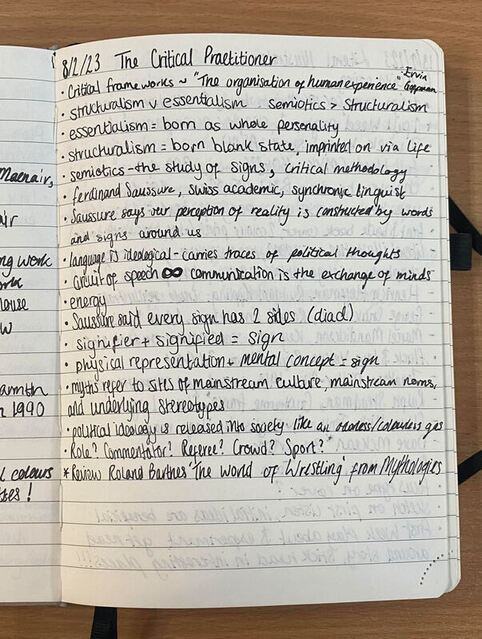 Macnair,
air
ng work
ork
house
w
warmth
n 1990
l colours
ses !
8/2/23 The Critical Practitioner
• Critical frameworks ~ "The organisation of human experience" Ervin
• structuralism v essentialism semiotics > structuralism
• essentialism = born as whole personality
• structuralism = born blank state, imprinted on via life
• semiotics - the study of signs, critical methodology
• ferdinand Saussure, swiss academic, synchronic linguist
• Saussure says our perception of reality is constructed by words
and signs around us
• language is ideological - carries traces of political thoughts
• circuit of speech ∞ communication is the exchange of minds
• energy
• Saussure said every sign has 2 sides (diad)
• signifier + signified = sign
• physical representation + mental concept = sign
• myths refer to sits of mainstream culture, mainstream norms,
and underlying stereotypes
• political ideology is released into society like an odorless/colourless gas
• Role? Commentator? Referee? Crowd? Sport? *
* Review Roland Barthes 'The World of Wrestling' from Mythologies